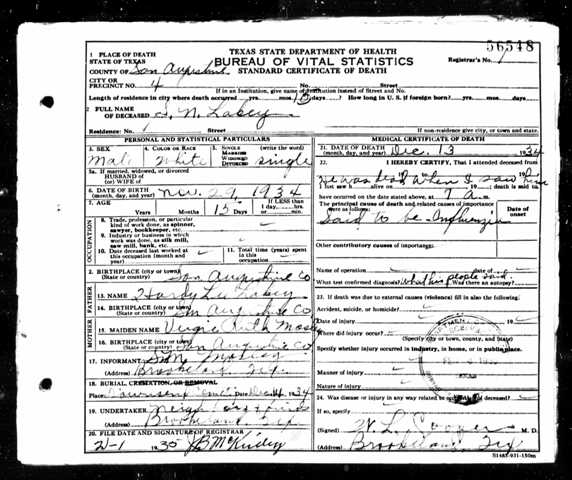 56548
TEXAS STATE DEPARTMENT OF HEALTH
BUREAU OF VITAL STATISTICS
STANDARD CERTIFICATE OF DEATH
Registrar's No. 1
1 PLACE OF DEATH
STATE OF TEXAS
COUNTY OF San Augustine
CITY OR
PRECINCT NO. 4 No. Street
If in an Institution, give name of institution instead of Street and No.
Length of residence in city where death occurred yrs. mos. 15 days How long in U. S. if foreign born? yrs. mos. days
2 FULL NAME
OF DECEASED N. Lacey
Residence: No. Street
If non-residence give city, or town and state.
PERSONAL AND STATISTICAL PARTICULARS
3. SEX
Male
4. COLOR OR RACE
White
5. SINGLE
MARRIED
WIDOWED
DIVORCED
single
5a. If married, widowed, or divorced
HUSBAND OF
(or) WIFE OF
6. DATE OF BIRTH
(month, day, and year) Nov. 29 1934
7. AGE
Years Months 15 Days
If LESS than
1 day, hrs.
or min.
OCCUPATION
8. Trade, profession, or particular
kind of work done, as spinner,
sawyer, bookkeeper, etc.
9. Industry or business in which
work was done, as silk mill,
saw mill, bank, etc.
10. Date deceased last worked at
this occupation (month and
year)
11. Total time (years) spent
in this
occupation
12. BIRTHPLACE (city or town)
(State or country) San Augustine Co
FATHER
13. NAME Lee Lacey
14. BIRTHPLACE (city or town)
(State or country) San Augustine Co
MOTHER
15. MAIDEN NAME Ruth
16. BIRTHPLACE (city or town)
(State or country) San Augustine Co
17. INFORMANT
(Address) Brookeland, Tex.
18. BURIAL, CREMATION, OR REMOVAL
Place Townsend Date Dec 14 1934
19. UNDERTAKER
(Address) Brookeland Tex
20. FILE DATE AND SIGNATURE OF REGISTRAR
2-1 1935 J B McKinley
MEDICAL CERTIFICATE OF DEATH
21. DATE OF DEATH
(month, day, and year) Dec. 13 1934
22. I HEREBY CERTIFY, That I attended deceased from
He was dead when I saw him
I last saw h alive on death is said to
have occurred on the date stated above, at 7 a m.
The principal cause of death and related causes of importance
were as follows:
Date of
onset
said to be Influenza
Other contributory causes of importance:
Name of operation date of
What test confirmed diagnosis? what his people said. Was there an autopsy?
23. If death was due to external causes (violence) fill in also the following:
Accident, suicide, or homicide?
Date of injury 19
Where did injury occur?
(Specify city or town, county, and State)
Specify whether injury occurred in industry, in home, or in public place.
Manner of injury
Nature of injury
24. Was disease or injury in any way related to occupation of deceased?
If so, specify
(Signed) W. L. Cooper M. D.
(Address) Brookeland, Tex
S1485-931-150m